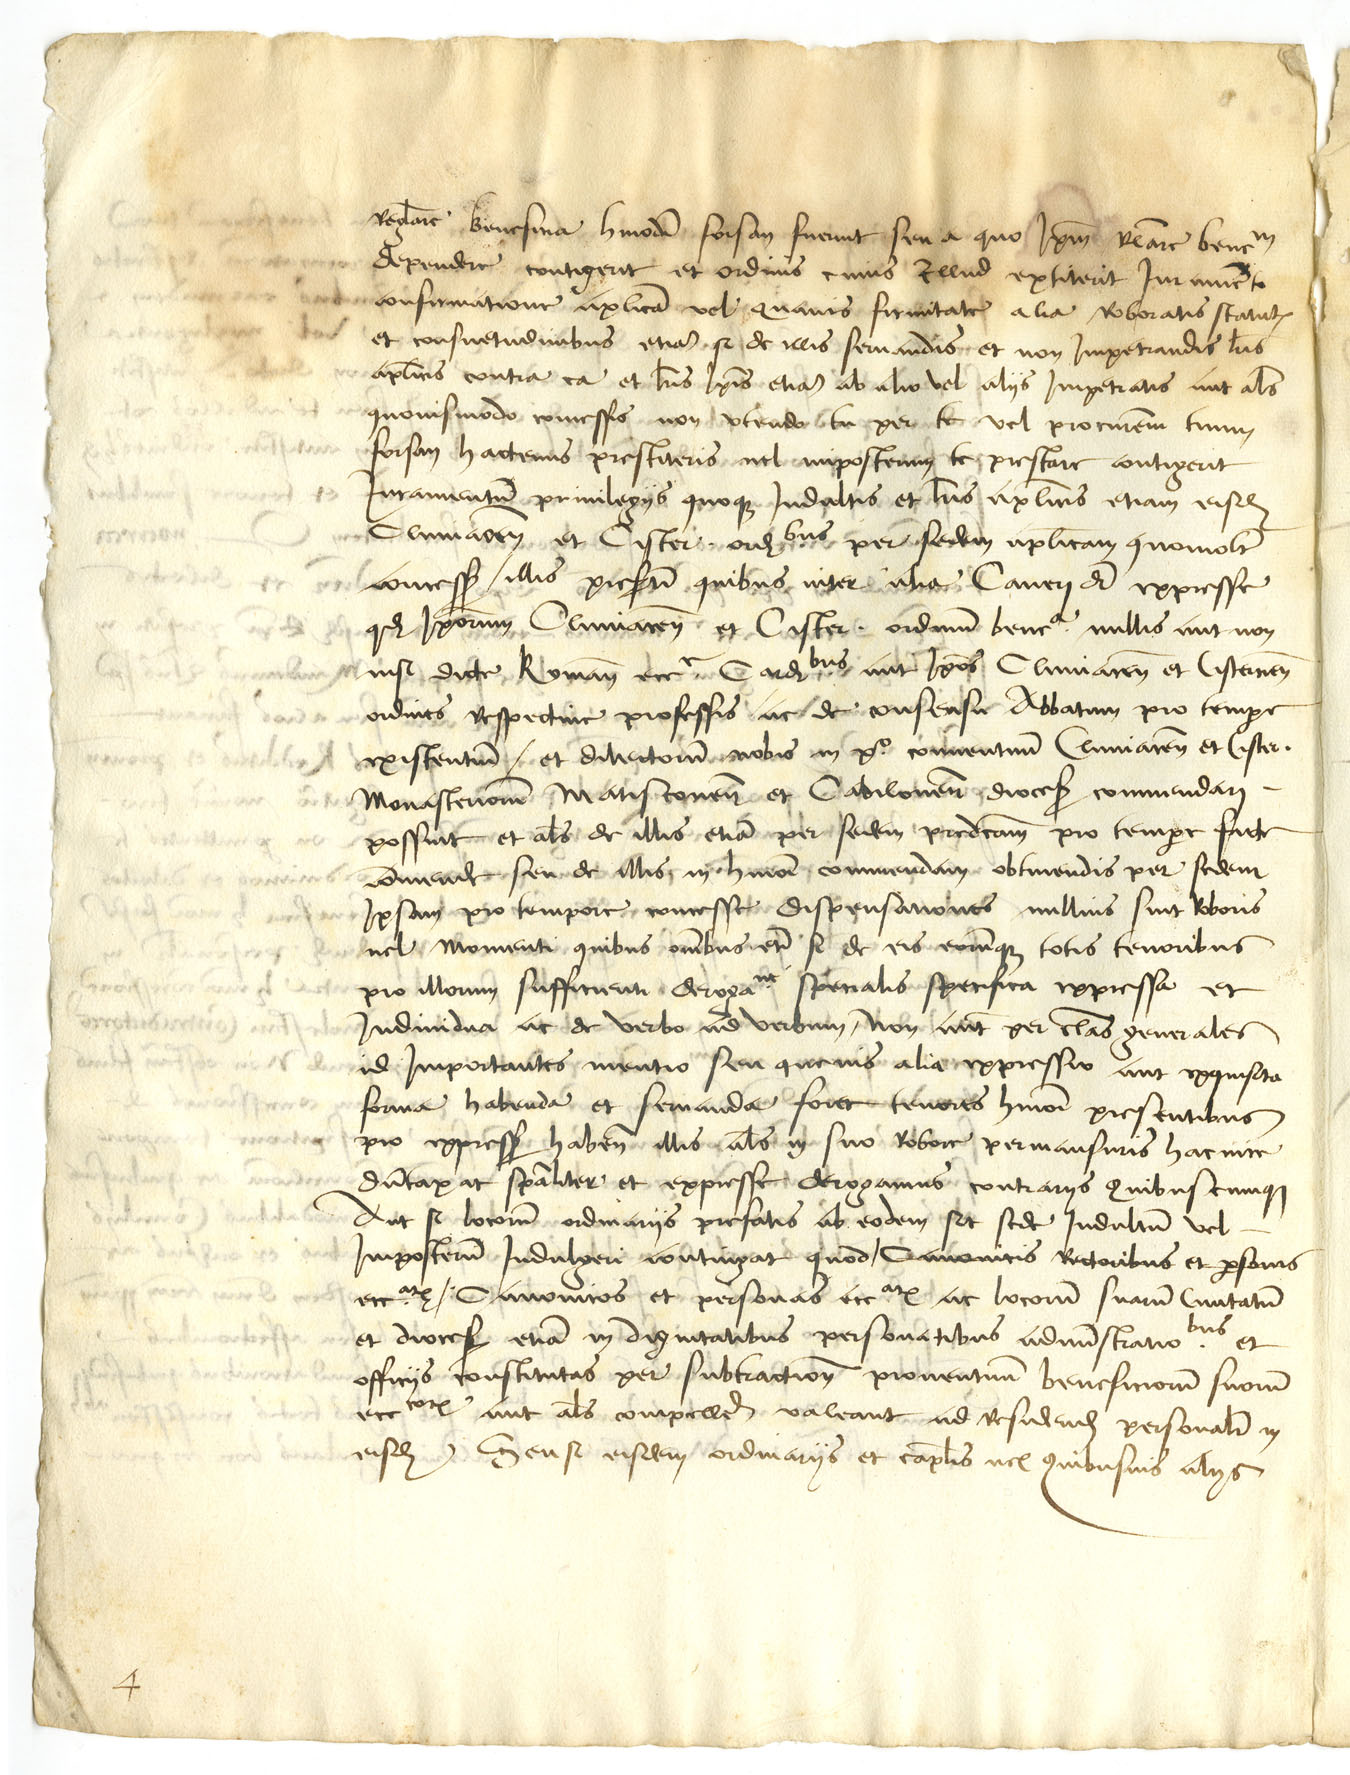 Reglare beneficia hmodi forsan fuerint seu a quo Ipm Rlare benem
dependere contigerit et ordinis cuius Illud extiterit Iuramento
confirmatione aplica vel quavis firmitate alia Roboratis statutis
et consuetudinibus etiam si de illis servandis et non Impetrandis lris
aplicis contra ea et lris Ipis etiam ab alio vel alijs Impetratis aut als
quovismodo concessis non utendo tu per te vel procurem tuum
forsan hactenus prestiteris vel imposterum te prestare contigerit
Iuramentum privilegijs quoque Indultis et lris aplicis etiam eisdem
Cluniacen et Cister. ordbus per sedem aplicam quomolt
concess / illis presertim quibus inter alia Caveri dr expresse
qd Ipsorum Cluniacen et Cister. ordinum benea nullis aut non
nisi dicte Roman ecce Cardbus aut Ipos Cluniacen et Cistercien
ordines Respective professis ac de consensu Abbatum pro tempore
existentium / et dilectorum nobis in xpo conventuum Cluniacen et Cister.
Monasteriorum Matisconen et Cabilonen dioces commendari
possint et als de illis etiam per sedem predictam pro tempore facte
commende seu de illis in hmoi commendam obtinendis per sedem
Ipsam pro tempore concesse dispensationes nullius sint Roboris
vel Momenti quibus omnibus etiam si de eis eorumque totis tenoribus
pro illorum sufficienti derogane specialis specifica expressa et
Individua ac de verbo ad verbum / Non aut per clas generales
id Importantes mentio seu quevis alia expressio aut exquisita
forma habenda et servanda foret tenores hmoi presentibus
pro express haben illis als in suo Robore permansuris hac vice
dumtaxat spaliter et expresse derogamus contrarijs Quibuscumque
Aut si locorum ordinarijs prefatis ab eodem sit sede Indultum vel
Imposterum Indulgeri contingat quod / Canonicis Rectoribus et personis
eccaticis / Canonicos et personas eccaticas ac locorum suarum Civitatum
et dioces etiam in dignitatibus personatibus administratiobus et
officijs constitutas per subtractionem proventuum beneficiorum suorum
ecccorum aut als compellere valeant ad Residend personalr in
eisdem Seu si eisdem ordinarijs et caplis vel Quibusvis alijs
4